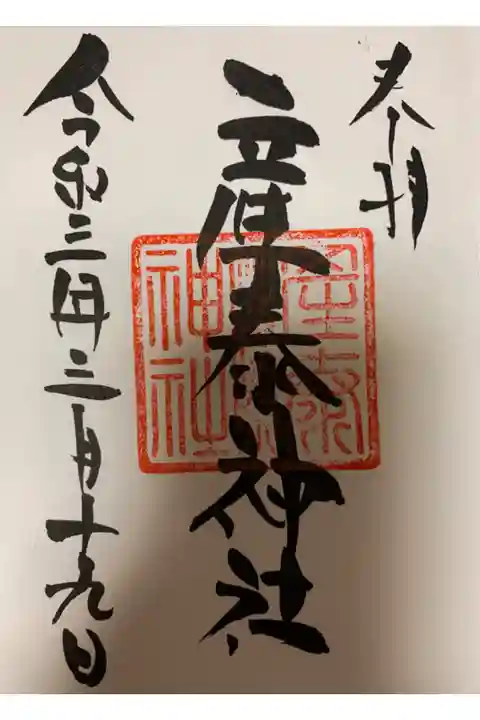 奉拝
産泰神社
令和三年三月十九日
産泰
神社